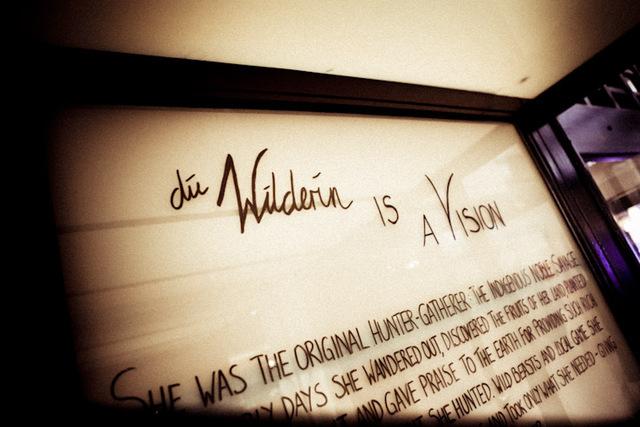 die Wilderin IS A VISION
SHE WAS THE ORIGINAL HUNTER-GATHERER: THE INDIGENOUS NOBLE SAVAGE
DAYS SHE WANDERED OUT, DISCOVERED THE FRUITS OF HER LAND,
AND GAVE PRAISE TO THE EARTH FOR PROVIDING SUCH
SHE HUNTED WILD BEASTS AND LOCAL GAME. SHE
AND TOOK ONLY WHAT SHE NEEDED - GIVING